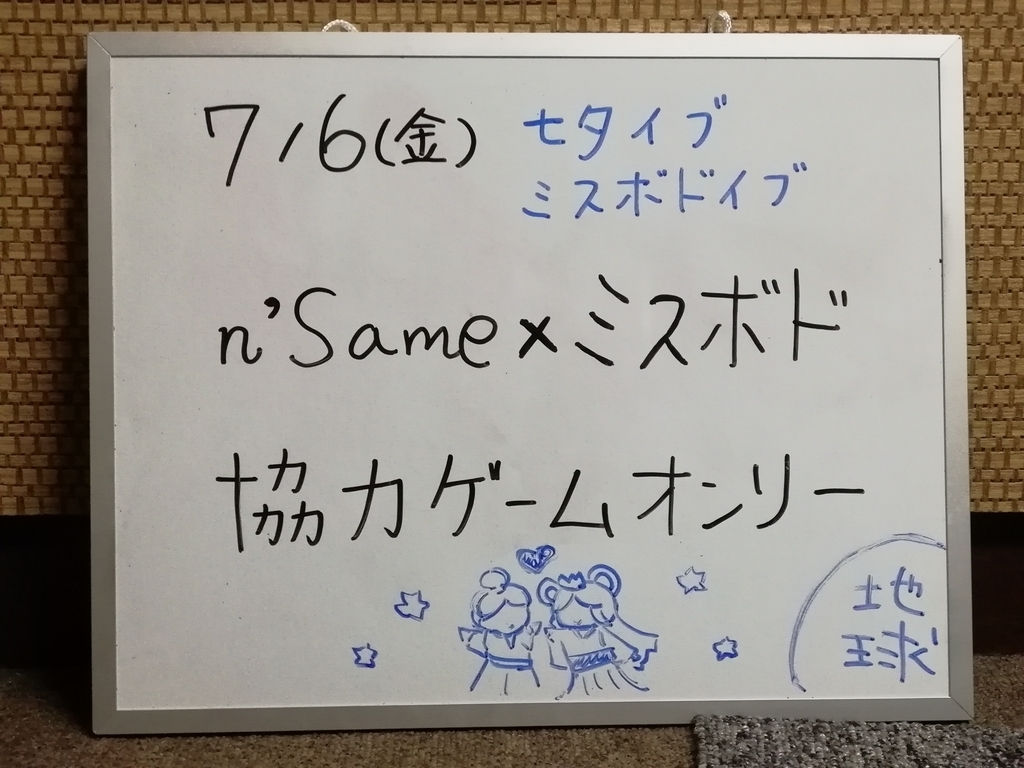 7/6(金)
七タイブ
ミスボドイブ
n'Same×ミスボド
協力ゲームオンリー
地
球